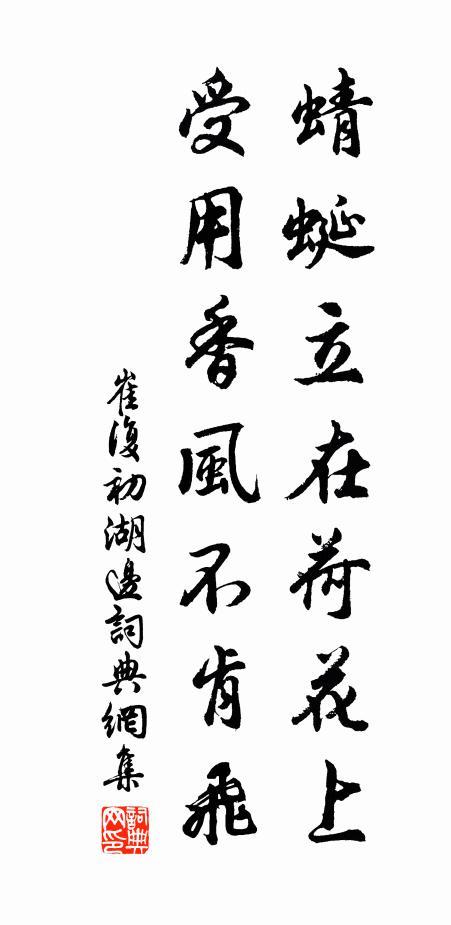 蜻蜓立在荷花上
受用香風不肯飛
崔復初湖邊詞典網集
詞典網印